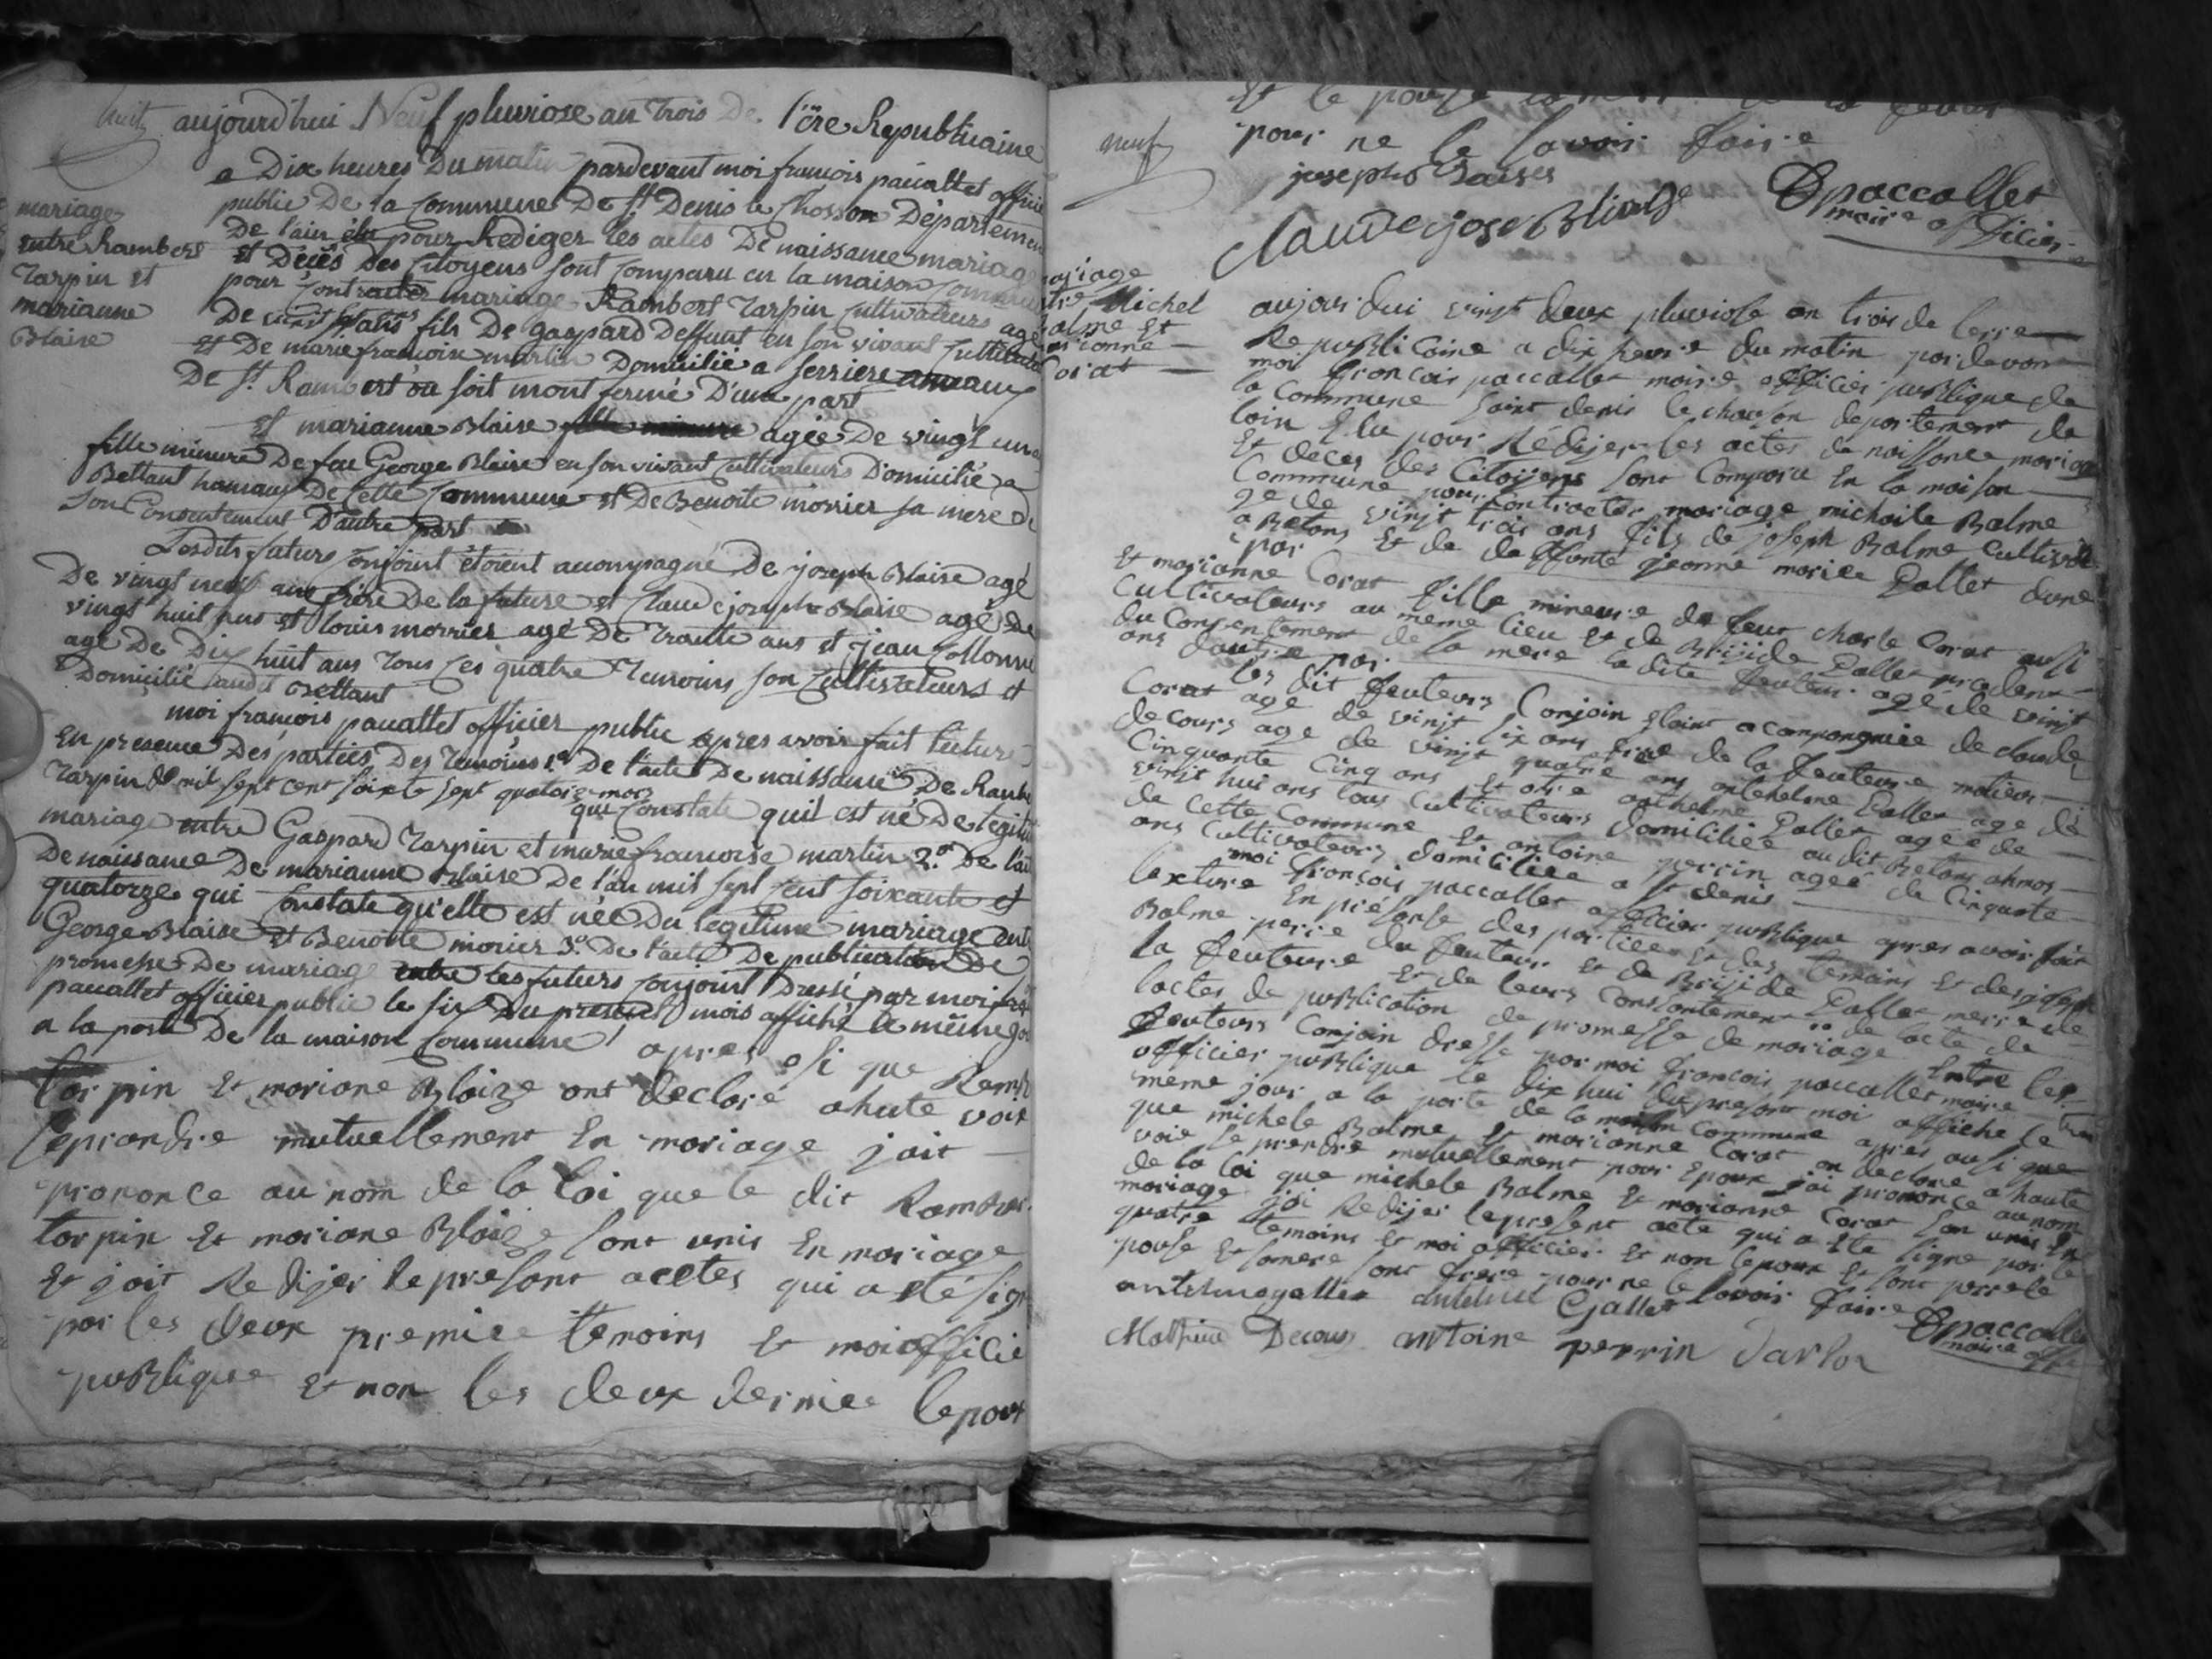 huit
mariage
entre Rambert
Tarpin et
marianne
Blaise
aujourd'hui Neuf pluviose an trois De l'ère Republicaine
a Dix heures Du matin pardevant moi francois paccallet officie
public De la Commune De St Denis le Chosson Départemen
De l'ain élu pour Rediger les actes De naissance mariage
et Décès Des Citoyens sont Comparu en la maison Commune
pour Contracter mariage Rambert Tarpin Cultivateurs agé
De vingt sept ans fils De gaspard Deffunt en son vivant Cultivate
et De marie francoise martin Domicilié a serriere ameaux
De St Rambert ou soit mont fermé D'une part
Et marianne Blaise fille mineure agée De vingt un
fille mineure De feu George Blaise en son vivant Cultivateurs Domicilié a
Bettant hamaux De Cette Commune et De Benoite morrier sa mere De
son Consentement D'autre part
Lesdits futurs Conjoint étoient accompagné De joseph Blaise agé
De vingt neuf ans frère De la future et Claude joseph Blaise agé De
vingt huit ans et louis morrier agé De Trante ans et jean Collonne
agé De Dix huit ans Tous Ces quatre Temoins son Cultivateurs et
Domicilié audit Bettant
moi francois paccallet officier public apres avoir fait lecture
En presence Des parties, Des Temoins 1o De l'acte De naissance De Ramb
Tarpin De mil sept cent soixte sept quatorze mars
qui Constate quil est né De legitim
mariage entre Gaspard Tarpin et marie francoise martin 2o De l'act
De naissance De marianne Blaise De l'an mil sept Cent soixante et
quatorze qui Constate qu'elle est née Du legitime mariage ent
George Blaise et Benoite morier 3o De l'acte De publication De
promesse De mariage entre les futurs Conjoint Dressé par moi fra
paccallet officier public le six Du present mois affiché le même jou
a la porte De la maison Commune apres esi que Ramb
tarpin Et moriane Blaize ont declaré ahute voix
seprandre mutuellement En mariage jait
prononce au nom de la loi que le dit Ramber
tarpin Et moriane Blaize sont unis En mariage
Et jait Redijer lepresant acctes qui a Eté sign
par les deux premiee temoins Et moi officie
publique Et non les deux derniee lepoux
Et le pouze
pour ne le savoir faire
joseph Blaises
Claude jose Blaise
Dpaccallet
maire officier
neuf
mariage
tre Michel
alme Et
rianne
Corat
aujourdui vingt deux pluviose an trois de lerre
Republicaine a dix heure du matin pardevan
moi francois paccallet maire officier publique de
la Commune saint denis le chauson departement de
lain Elu pour Rédijer les actes de naissance mariage
Et deces des Citoijens sont Comparu En la maison
Commune pour Contracter mariage michaile Balme
ge de vinjt trois ans fils de joseph Balme Cultivate
a Betans Et de deffonte jeanne mariee Gallet dune
par
Et marianne Corat fille mineure de feut charle Corat ausi
Cultivateurs au meme lieu Et de Brijide Gallet
du Consentement de la mere la dite feuteur agé de vinjt
ans dautre par
les dit feuteurs Conjoin Etoint acompagniee de claude
Corat age de vinjt six ans frere de la feuteure matieu
decours age de vinjt quatre ans antehelme Gallet age de
Cinquante Cinq ans Et otre anthelme Gallet agee de
vinjt hui ans tous Cultivateurs domiciliee audit Betans
de cette Commune Et antoine perrin ageé de Cinquante
ans Cultivateurs domiciliee a st denis
moi francois paccallet officier publique apres avoir fait
lexture En présanse des partiee Et des temoins Et de joseph
Balme perre du feuteur Et de Brijide Gallet merre de
la feuteure Et de leurs Consontement de lacte de
lactes de publication de promesse de mariage Entre les
feuteurs Conjoin dresse par moi francois paccallet maire
officier publique le dix hui du presant moi affiche le
meme jour a la porte de la maison Commune apres ausi que
que michele Balme Et marianne Corat on declare ahaute
voie se prendre mutuellement pour Epoux jai prononce au nom
de la loi que michele Balme Et marianne Corat son unis En
mariage jai Redijer lepresent acte qui a Ete signe par le
quatre temoins Et moi officier Et non lepoux Et sont perre le
pouse Et samere sont frere pour ne le savoir faire
anthelme Gallet
Mathieu Decours antoine perrin
Dpaccallet
maire off